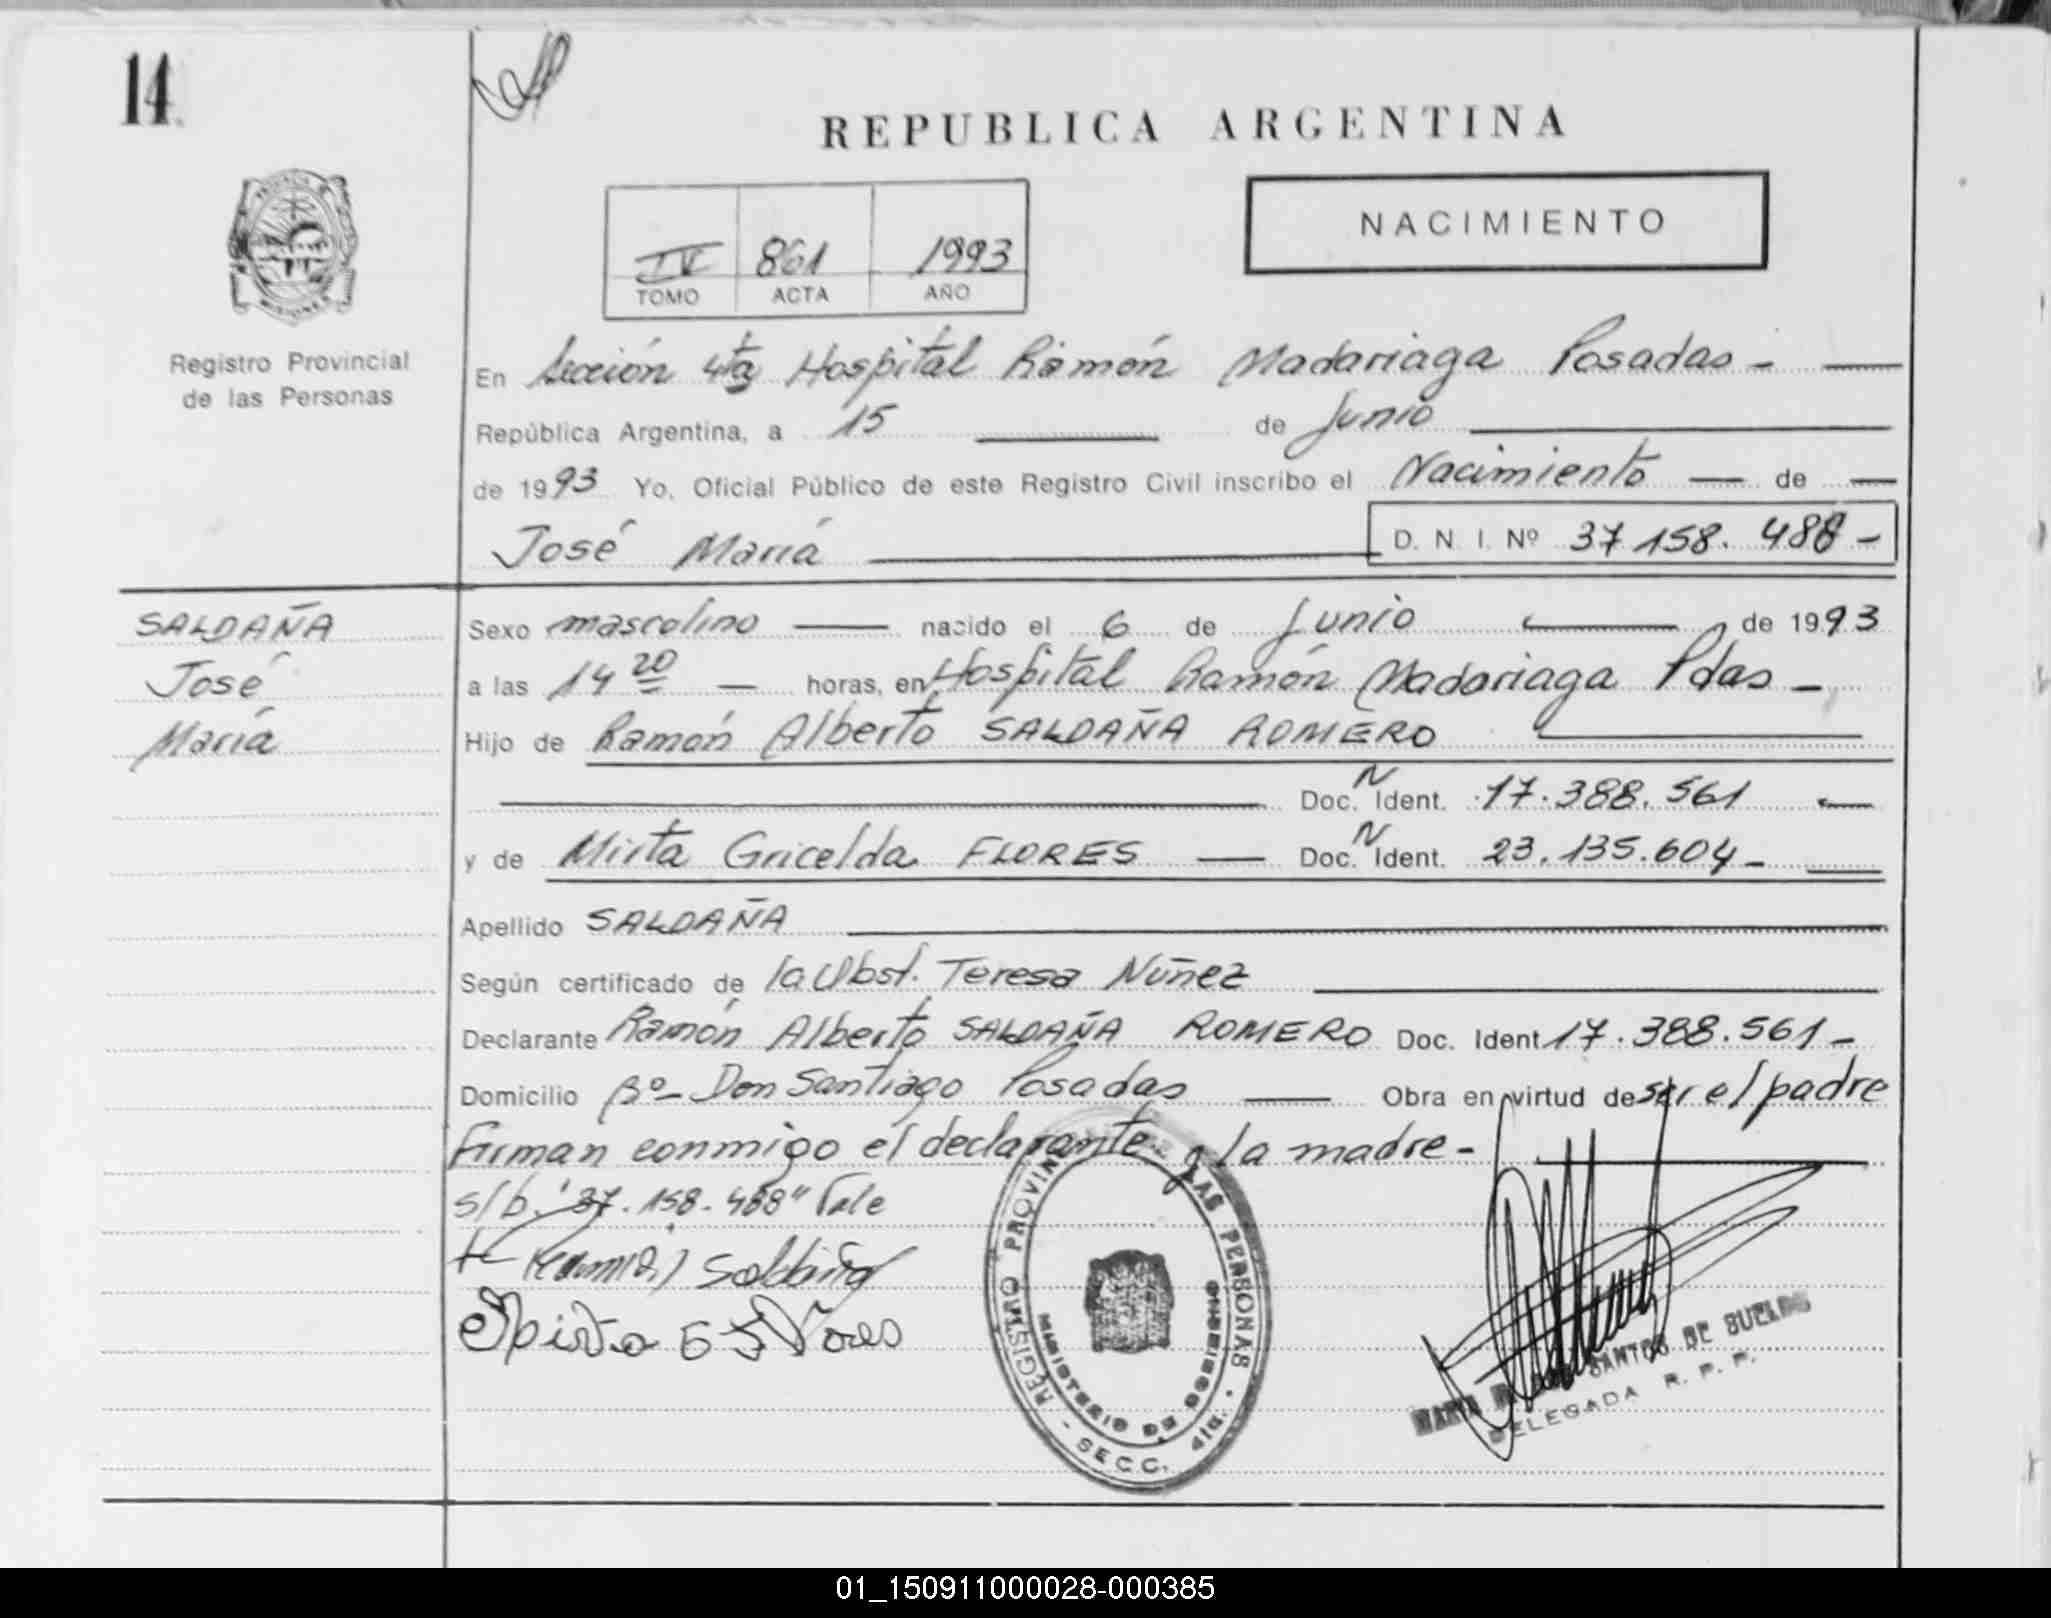 14
REPUBLICA ARGENTINA
NACIMIENTO
IV 861 1993
TOMO ACTA AÑO
Registro Provincial
de las Personas
En Sección 4ta Hospital Ramón Madariaga Posadas -
República Argentina, a 15 de Junio
de 1993 Yo, Oficial Público de este Registro Civil inscribo el Nacimiento de
José María D. N. I. Nº 37 158. 488 -
SALDAÑA
José
María
Sexo masculino nacido el 6 de Junio de 1993
a las 14 20 horas, en Hospital Ramón Madariaga Pdas -
Hijo de Ramón Alberto SALDAÑA ROMERO
Doc. N Ident. 17.388.561
y de Mirta Gricelda FLORES Doc. N Ident. 23.135.604 -
Apellido SALDAÑA
Según certificado de la Obst. Teresa Núñez
Declarante Ramón Alberto SALDAÑA ROMERO Doc. Ident 17.388.561 -
Domicilio Bº - Don Santiago Posadas Obra en virtud de ser el padre
Firman conmigo el declarante y la madre -
s/b. "37.158.488" Vale
REGISTRO PROVINCIAL DE LAS PERSONAS
MINISTERIO DE GOBIERNO
SECC. 4ta.
SANTOS DE SUELDO
DELEGADA R. P. P.
01_150911000028-000385